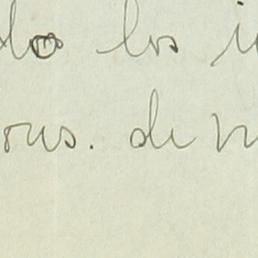 do los i
ous. de n